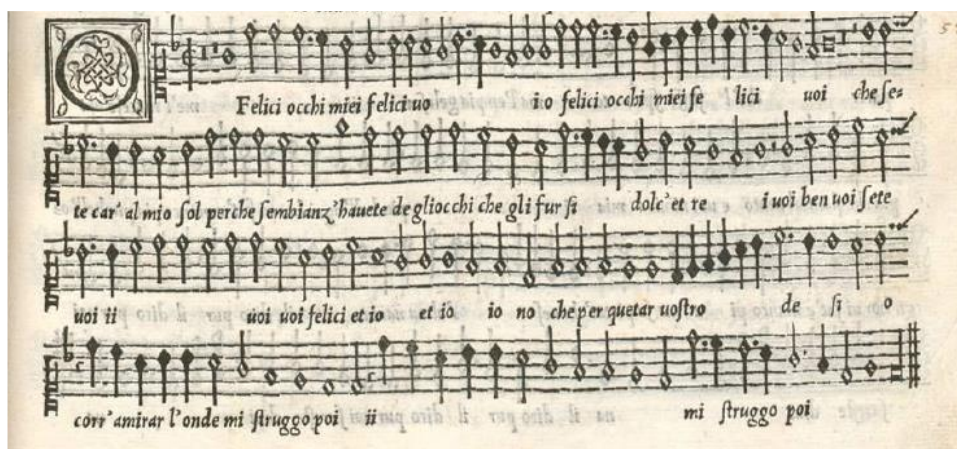 O Felici occhi miei felici uo io felici occhi miei fe lici uoi che se-
te car' al mio sol perche sembianz' hauete de gliocchi che gli fur si dolc' et re i uoi ben uoi sete
uoi ii uoi uoi felici et io et io io no che per quetar uostro de si o
corr' amirar l'onde mi struggo poi ii mi struggo poi